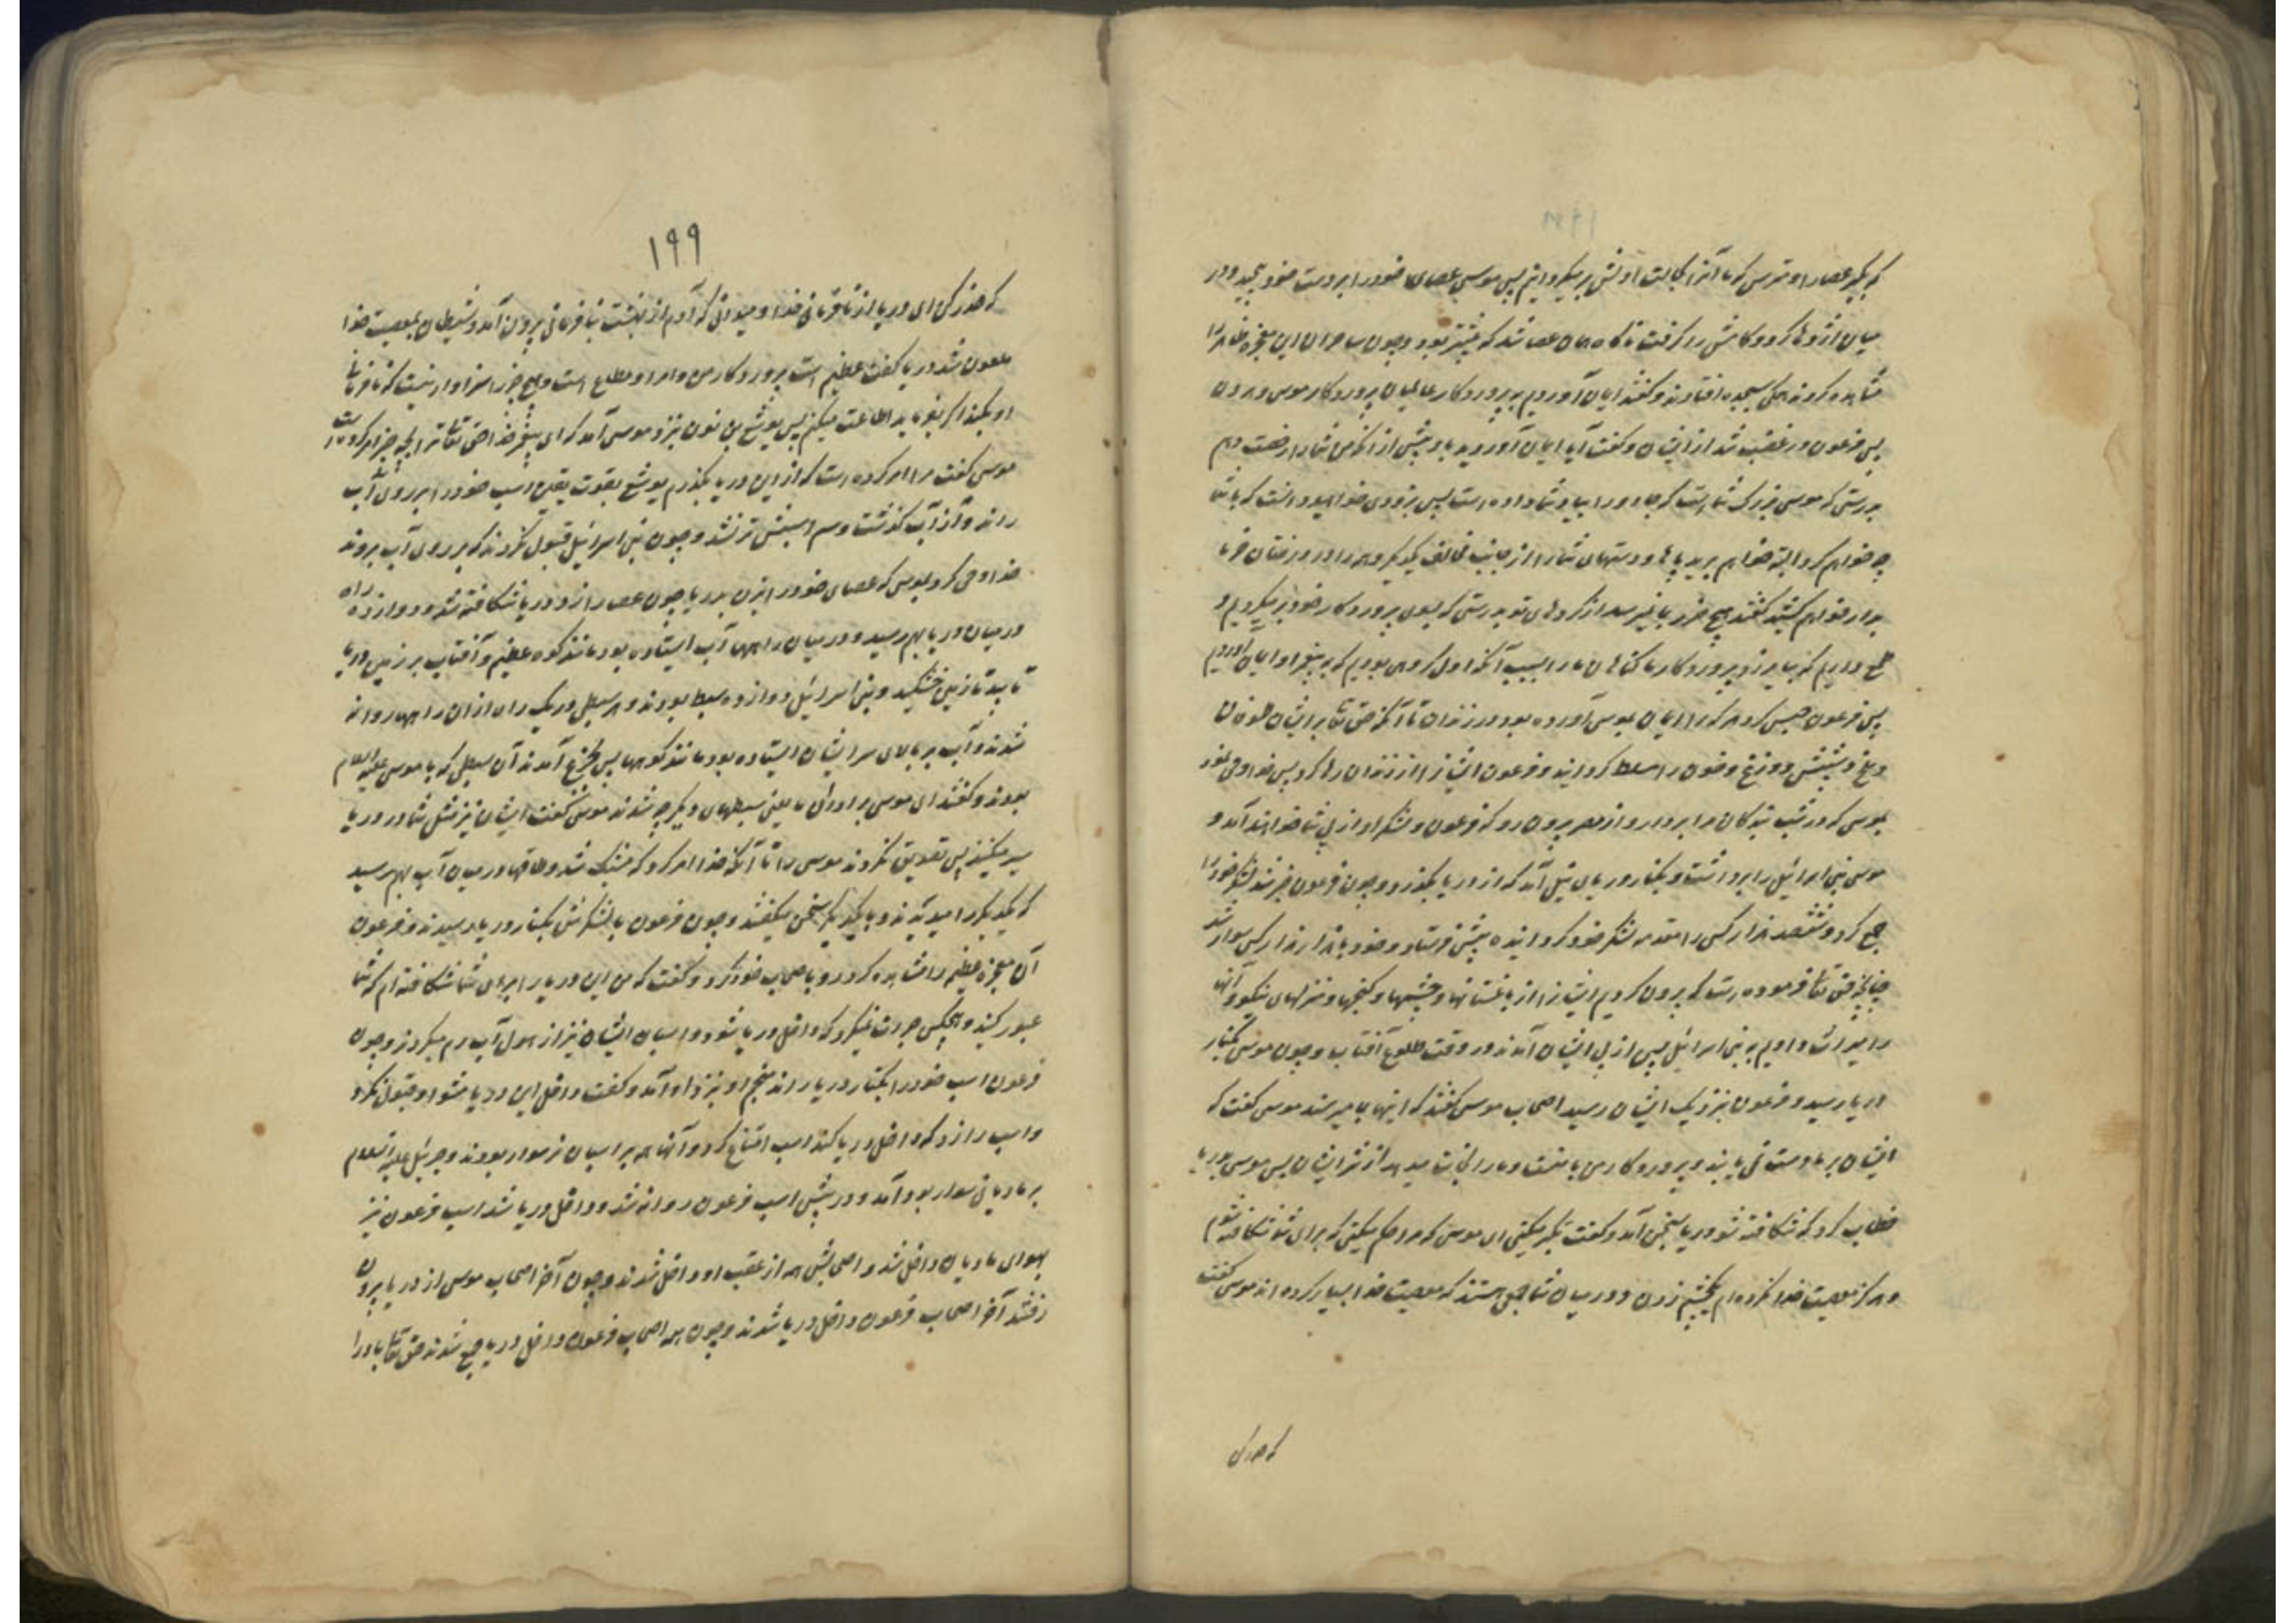 که بگیر عصا را و مترس که ما آنرا بحالت اولش بر میگردانیم پس موسی عصای خود را بر دست خود پیچید و در
میان اژدها کرد و کامش را گرفت ناگاه همان عصا شد که پیشتر بود و چون ساحران این معجزه ظاهر را
مشاهده کردند همگی بسجده افتادند و گفتند ایمان آوردیم به پروردگار عالمیان پروردگار موسی و هرون
پس فرعون در غضب شد از ایشان و گفت آیا ایمان آوردید باو پیش از آنکه من شما را رخصت دهم
بدرستی که موسی بزرگ شما است که جادو را بیاد شما داده است پس بزودی خواهید دانست که با شما
چه خواهم کرد البته خواهم برید پاها و دستهای شما را از جانب مخالف یکدیگر و همه را در درختان خرما
بردار خواهم کشید گفتند هیچ ضرر بما نمیرسد از کردهای تو بدرستی که بسوی پروردگار خود بر میگردیم و
طمع داریم که بیامرزد پروردگار ما گناهان ما را بسبب آنکه اول گروهی بودیم که به پیغمبر او ایمان آوردیم
پس فرعون حبس کرد هر که را ایمان بموسی آورده بود در زندان تا آنکه حق تعالی بر ایشان طوفان
و ملخ و شپش و وزغ و خون را مسلط گردانید و فرعون ایشان را از زندان رها کرد پس خدا وحی نمود
بموسی که در شب بندگان مرا بردار و از مصر بیرون رو که فرعون و لشکر او از پی شما خواهند آمد و
موسی بنی اسرائیل را برداشت و بکنار دریای نیل آمد که از دریا بگذرد و چون فرعون خبر شد لشکر خود را
جمع کرد و ششصد هزار کس را مقدمه لشکر خود گردانیده پیش فرستاد و خود با هزار هزار کس سوار شد
چنانچه حق تعالی فرموده است که بیرون کردیم ایشان را از باغستانها و چشمها و گنجها و منزلهای نیکو و آنها
را میراث دادیم به بنی اسرائیل پس از پی ایشان آمدند در وقت طلوع آفتاب و چون موسی بکنار
دریا رسید و فرعون نزدیک ایشان رسید اصحاب موسی گفتند که اینها بما میرسند موسی گفت که
ایشان بر ما دست نمی یابند و پروردگار من با منست و ما را نجات میدهد از شر ایشان پس موسی بدریا
خطاب کرد که شکافته شو دریا بسخن آمد و گفت تکبر میکنی ای موسی که مرا حکم میکنی که برای تو شکافته شوم
و هرگز معصیت خدا نکرده ام یکچشم زدن و در میان شما جمعی هستند که معصیت خدا بسیار کرده اند موسی گفت
که حذر کن
۱۹۹
که حذر کن ای دریا از نافرمانی خدا و میدانی که آدم از بهشت بنافرمانی بیرون آمد و شیطان بمعصیت خدا
ملعون شد دریا گفت عظیم است پروردگار من و امر او مطاع است و هیچ چیز را سزاوار نیست که نافرمانی
او بکند اگر بفرماید اطاعت میکنم پس یوشع بن نون بنزد موسی آمد که ای پیغمبر خدا حق تعالی ترا بچه چیز امر کرده است
موسی گفت مرا امر کرده است که از این دریا بگذرم یوشع بقوت یقین اسب خود را بر روی آب
راند و از آب گذشت و سم اسبش تر نشد و چون بنی اسرائیل قبول نکردند که بر روی آب بروند
خدا وحی کرد بموسی که عصای خود را بزن بدریا چون عصا را زد دریا شکافته شد و دوازده راه
در میان دریا بهم رسید و در میان راهها آب ایستاده بود مانند کوه عظیم و آفتاب بر زمین دریا
تابید تا زمین خشکید و بنی اسرائیل دوازده سبط بودند و هر سبطی در یک راه از آن راهها روانه
شدند و آب بر بالای سر ایشان ایستاده بود مانند کوهها پس بجزع آمدند آن سبطی که با موسی علیه السلام
بودند و گفتند ای موسی برادران ما یعنی سبطهای دیگر چه شدند موسی گفت ایشان نیز مثل شما در دریا
سیر میکنند پس تصدیق نکردند موسی را تا آنکه خدا امر کرد که مشبک شد و طاقها در میان آب بهم رسید
که یکدیگر را میدیدند و با یکدیگر سخن میگفتند و چون فرعون با لشکرش بکنار دریا رسیدند و فرعون
آن معجزه عظیم را مشاهده کرد رو باصحاب خود کرد و گفت که من این دریا را برای شما شکافته ام که شما
عبور کنید و هیچکس جرات نمیکرد که داخل دریا شود و اسبان ایشان نیز از هول آب رم میکردند و چون
فرعون اسب خود را بکنار دریا راند منجم او بنزد او آمد و گفت داخل این دریا مشو او قبول نکرد
و اسب را زد که داخل دریا کند اسب امتناع کرد و آنها همه بر اسبان نر سوار بودند و جبرئیل علیه السلام
بر مادیانی سوار بود آمد و در پیش اسب فرعون روانه شد و داخل دریا شد اسب فرعون نیز
بهوای مادیان داخل شد و اصحابش همه از عقب او داخل شدند و چون آخر اصحاب موسی از دریا بیرون
رفتند آخر اصحاب فرعون داخل دریا شدند و چون همه اصحاب فرعون داخل دریا جمع شدند حق تعالی باد را